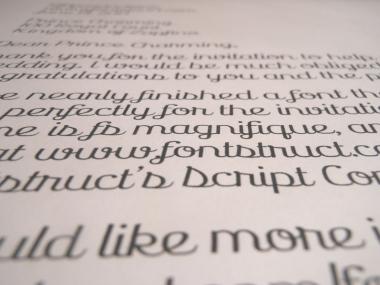 Prince Charming
Kingdom of
Dear Prince Charming,
you for the invitation to help
I would be much obliged
gratulations to you and the p
e nearly finished a font tha
perfectly for the invitatio
me is fs magnifique, an
at www.fontstruct.co
struct's Script Com
uld like more i